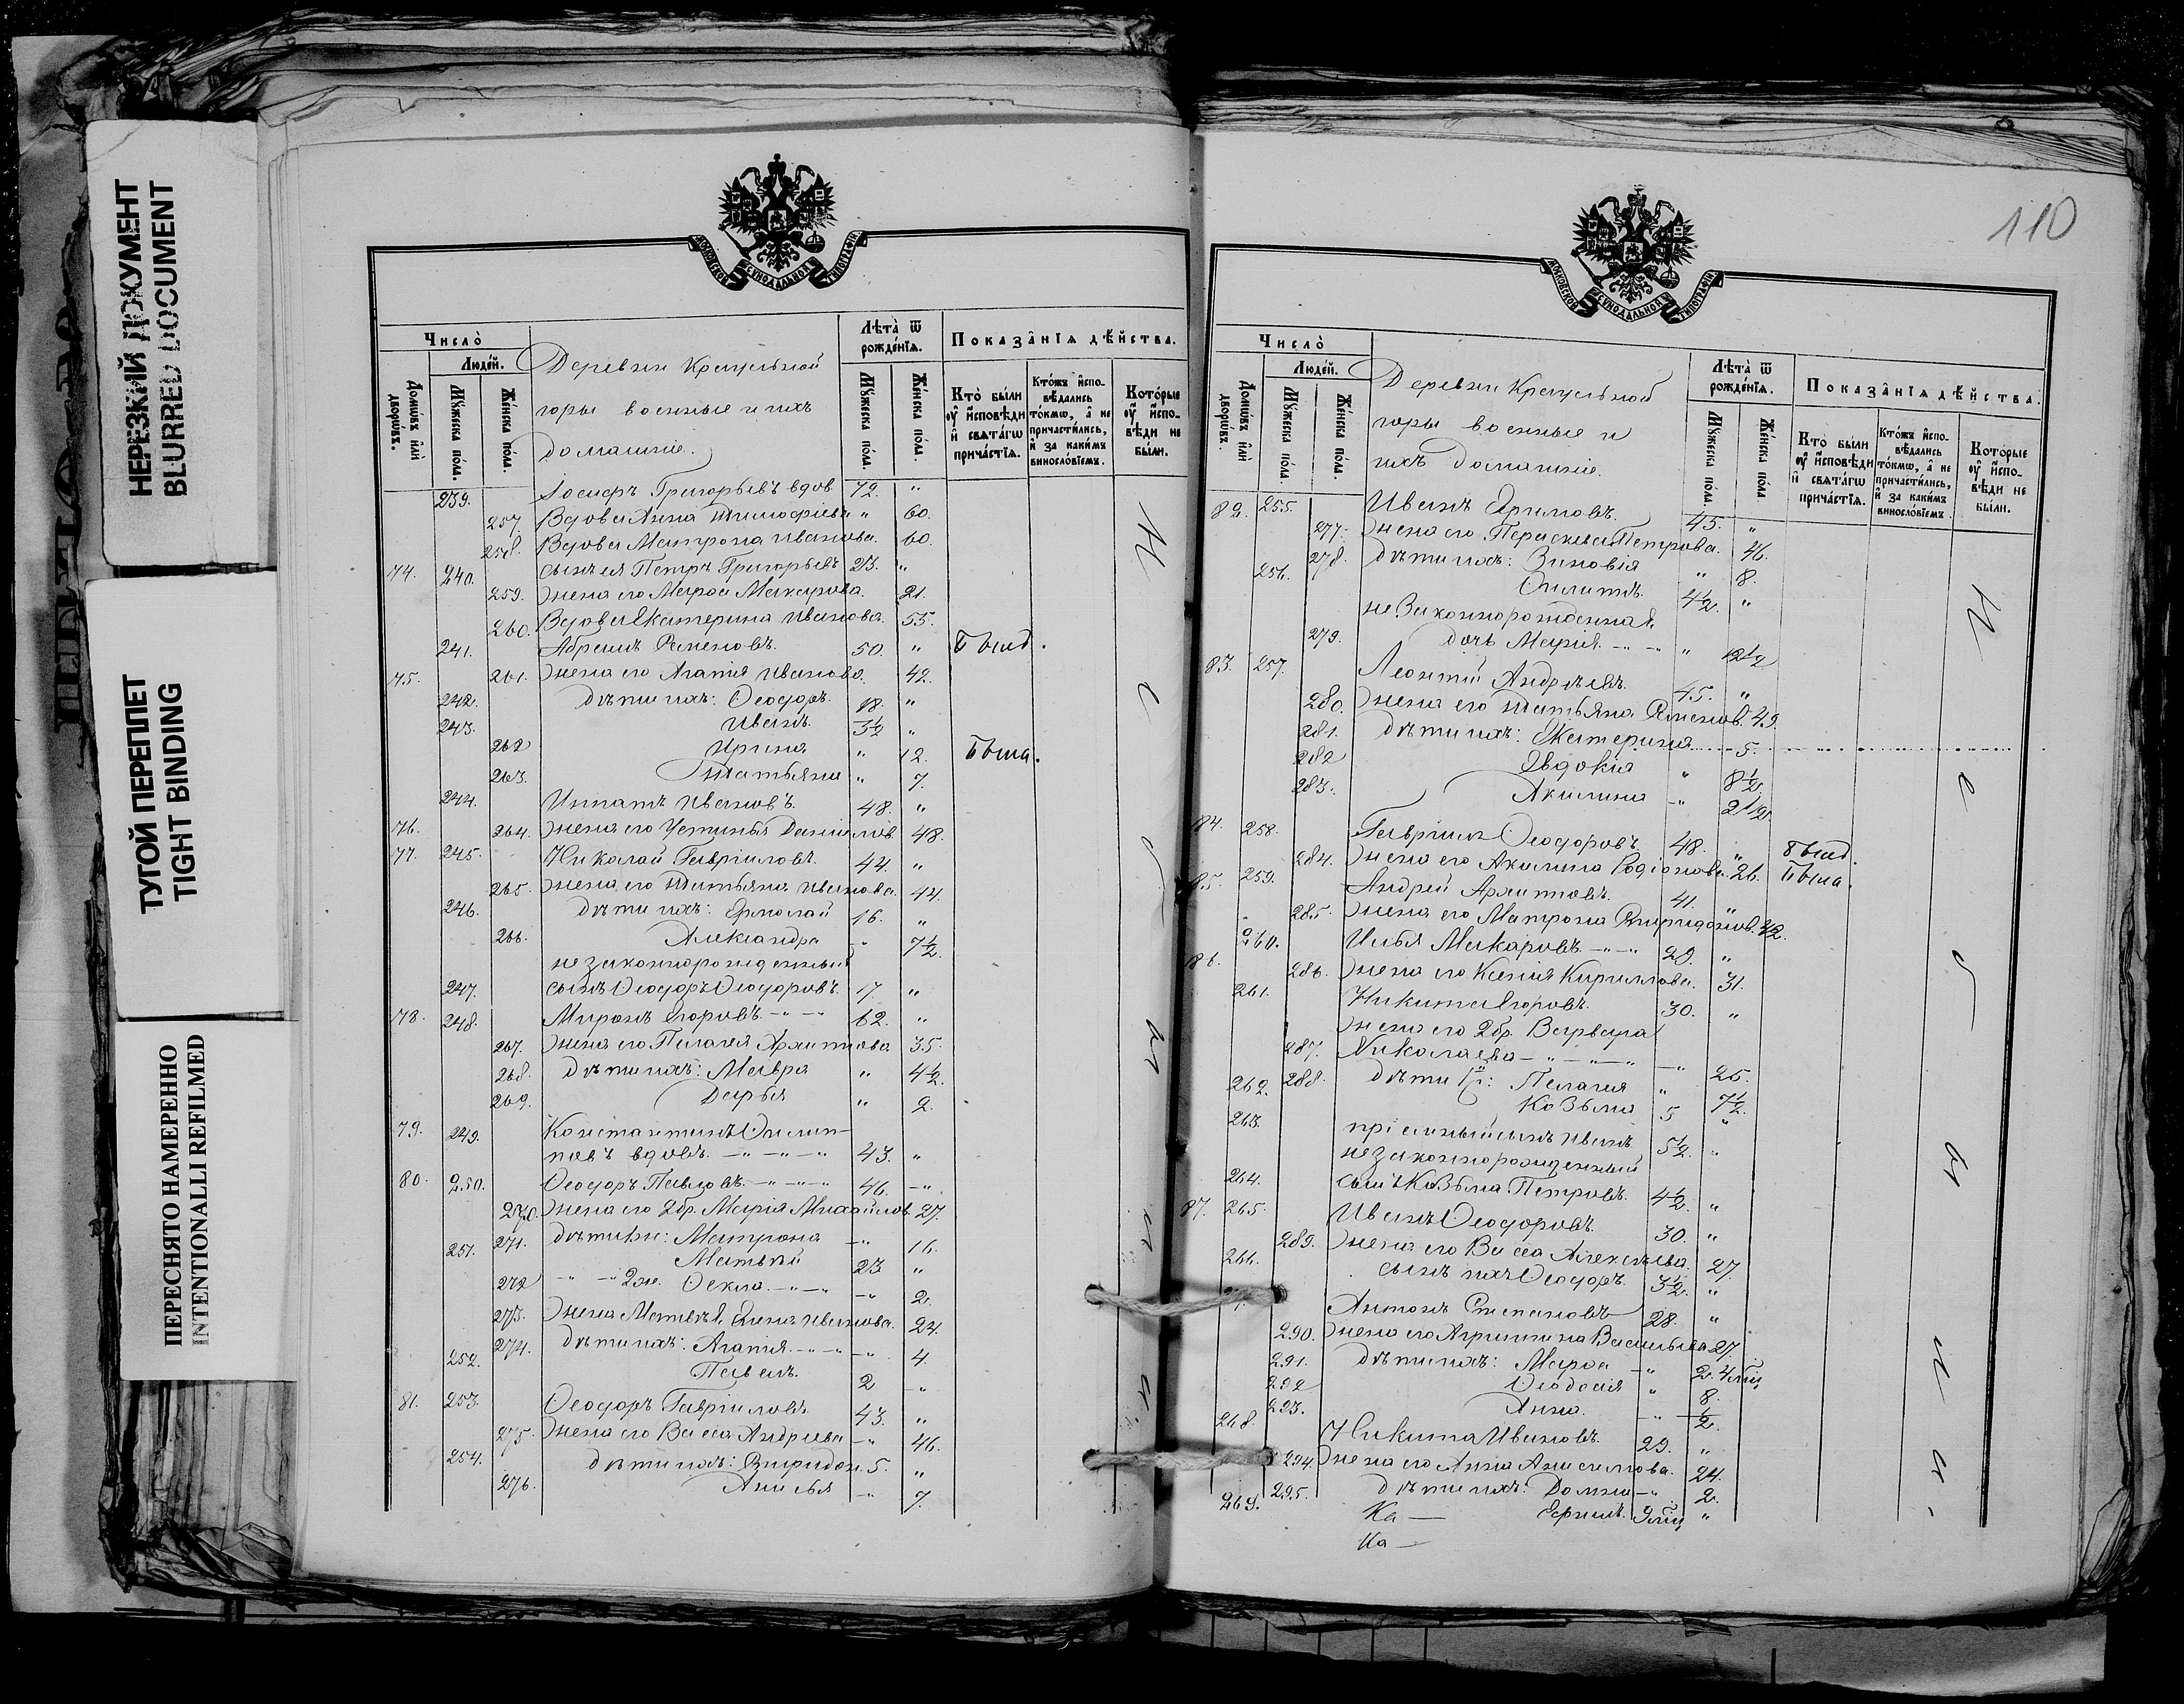 НЕРЕЗКИЙ ДОКУМЕНТ
BLURRED DOCUMENT
ТУГОЙ ПЕРЕПЛЕТ
TIGHT BINDING
ПЕРЕСНЯТО НАМЕРЕННО
INTENTIONALLI REFILMED
МОСКОВСКОЙ СѴНОДАЛЬНОЙ ТИПОГРАФІИ
Число̀
Люде́й.
Домѡ́въ и҆лѝ дворѡ́въ.
Мꙋ́жеска по́ла.
Же́нска по́ла.
Деревни Крестьной
горы военные и ихъ
домашніе.
Лѣ́та ѿ рожде́нїѧ.
Мꙋ́жеска по́ла.
Же́нска по́ла.
Показа̂нїѧ дѣ́йства.
Кто̀ бы́ли оу҆ и҆́сповѣди и҆ свѧта́гѡ прича́стїѧ.
Кто́жъ и҆спо-вѣ́дались то́кмѡ, а҆ не причасти́лись, и҆ за каки́мъ виносло́вїемъ.
Кото́рые оу҆ и҆́спо-вѣди не бы́ли.
239. Іосифъ Григорьевъ вдов. 72. "
257. Вдова Анна Тимофѣева " 60.
258. Вдова Матрона Иванова. 60.
74. 240. сынъ ея Петръ Григорьевъ 23. "
259. Жена его Марѳа Макарова. 21.
260. Вдова Екатерина Иванова. 55.
241. Абрамъ Семеновъ. 50. " былъ.
75. 261. Жена его Агапія Иванова. 42.
242. дѣти ихъ: Ѳеодоръ. 18. "
243. Иванъ. 3½ "
262 Ирина " 12. была.
263. Татьяна " 7.
244. Ипатъ Ивановъ. 48. "
76. 264. Жена его Устинья Данилов. 48.
77. 245. Николай Гавріиловъ. 44. "
265. Жена его Татьяна Иванова. 44.
246. дѣти ихъ: Ермолай 16. "
266. Александра " 7½.
незаконнорожденный
247. сынъ Ѳеодоръ Ѳеодоровъ. 17. "
78. 248. Миронъ Егоровъ. 62. "
267. Жена его Пелагея Архипова 35.
268. дѣти ихъ: Мавра " 4½.
269. Дарья " 2.
79. 249. Константинъ Филип-
повъ вдовъ. 43. "
80. 250. Ѳеодоръ Павловъ. 46. "
270. Жена его 2 бр. Марія Михайлов. 27.
271. дѣти: Матрона " 16.
251. Матвѣй 23 "
272 2 ж. Ѳекла " 2.
273. Жена Матвѣя Елена Иванова. 24.
274. дѣти ихъ: Агапія " 4.
252. Павелъ. 2 "
81. 253. Ѳеодоръ Гавріиловъ 43. "
275. Жена его Васса Андреева " 46.
254. дѣти ихъ: Спиридон. 5. "
276. Анисья " 7.
Н е б ы л и.
110
МОСКОВСКОЙ СѴНОДАЛЬНОЙ ТИПОГРАФІИ
Число̀
Люде́й.
Домѡ́въ и҆лѝ дворѡ́въ.
Мꙋ́жеска по́ла.
Же́нска по́ла.
Деревни Крестьной
горы военные и
ихъ домашніе.
Лѣ́та ѿ рожде́нїѧ.
Мꙋ́жеска по́ла.
Же́нска по́ла.
Показа̂нїѧ дѣ́йства.
Кто̀ бы́ли оу҆ и҆́сповѣди и҆ свѧта́гѡ прича́стїѧ.
Кто́жъ и҆спо-вѣ́дались то́кмѡ, а҆ не причасти́лись, и҆ за каки́мъ виносло́вїемъ.
Кото́рые оу҆ и҆́спо-вѣди не бы́ли.
82. 255. Иванъ Ефимовъ. 45. "
277. Жена его Параскева Петрова. 46.
278. дѣти ихъ: Зиновія " 8.
256. Филиппъ. 4½. "
незаконнорожденная
279. дочь Марія "
83. 257. Леонтій Андрѣевъ. 45. "
280. Жена его Татьяна Семенов. 49.
281. дѣти ихъ: Екатерина 5.
282 Евдокія " 8½
283. Акилина " 2 1/2
84. 258. Гавріилъ Ѳеодоровъ 48. " былъ.
284. Жена его Акилина Родіонова. 26. была.
85. 259. Андрей Архиповъ. 41. "
285. Жена его Матрона Спиридонов. 42.
86. 260. Илья Макаровъ. 29. "
286. Жена его Ксенія Кириллова. 31.
261. Никита Егоровъ. 30. "
жена его 2 бр. Варвара
287. Николаева " 25.
288. дѣти: Пелагея " 7½.
262. Козьма 5 "
263. пріемный сынъ Иванъ 5½. "
незаконнорожденный
264. сынъ Козьма Петровъ. 4½ "
87. 265. Иванъ Ѳеодоровъ. 30. "
289. Жена его Васса Алексѣева. 27.
266. сынъ ихъ Ѳеодоръ. 3½. "
Антонъ Степановъ 28. "
290. Жена его Агрипина Васильева 27.
291. дѣти ихъ: Марѳа "
292 Ѳеодосія " 8.
293. Анна. " ½.
268. Никита Ивановъ. 29. "
294. Жена его Анна Анисимова. 24.
295. дѣти ихъ: Домна " 2.
269. Ка — Ефимъ. "
Ка —
Н е б ы л и.